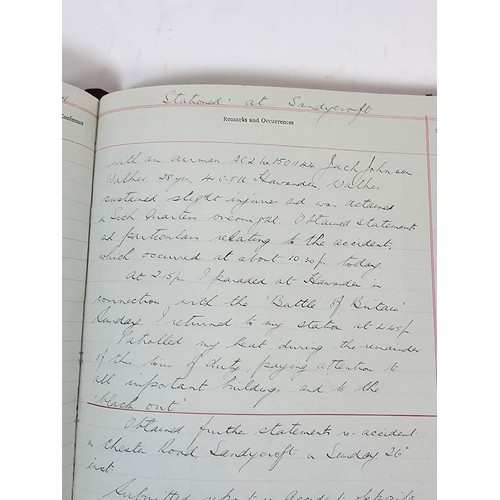 Stationed at Sandycroft
Conference
Remarks and Occurrences
with an airman AC2 No 1501144 Jach Johnson
Walker 28 yrs 41 O.T.U Hawarden. Walker
sustained slight injuries ad was detained
in Sick Quarters overnight. Obtained statement
ad particulars relating to the accident,
which occurred at about 10.30p. today.
At 2.15p. I paraded at Hawarden in
connection with the 'Battle of Britain'
Sunday. I returned to my station at 4.45p.
Patrolled my beat during the remainder
of this tour of duty, paying attention to
all important buildings and to the
'black out'
Obtained further statements re-accident
in Chester Road, Sandycroft on Sunday 26th
inst
Submitted report re accident opposite